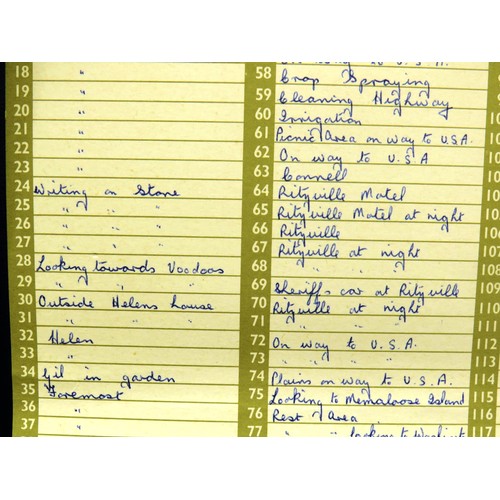 18 "
19 "
20 "
21 "
22 "
23 "
24 Writing on Stone
25 " " "
26 " " "
27 " " "
28 Looking towards Voodoos
29 " " "
30 Outside Helens house
31 " " "
32 Helen
33 "
34 Gil in garden
35 Foremost
36 "
37 "
U.S.A.
58 Crop Spraying
59 Cleaning Highway
60 Irrigation
61 Picnic Area on way to U.S.A.
62 On way to U.S.A
63 Connell
64 Ritzville Motel
65 Ritzville Motel at night
66 Ritzville
67 Ritzville at night
68 " " "
69 Sheriffs car at Ritzville
70 Ritzville at night
71 " "
72 On way to U.S.A.
73 " " "
74 Plains on way to U.S.A.
75 Looking to Memaloose Island
76 Rest Area
77 " " looking to
109
110
111
112
113
114
115
116
117